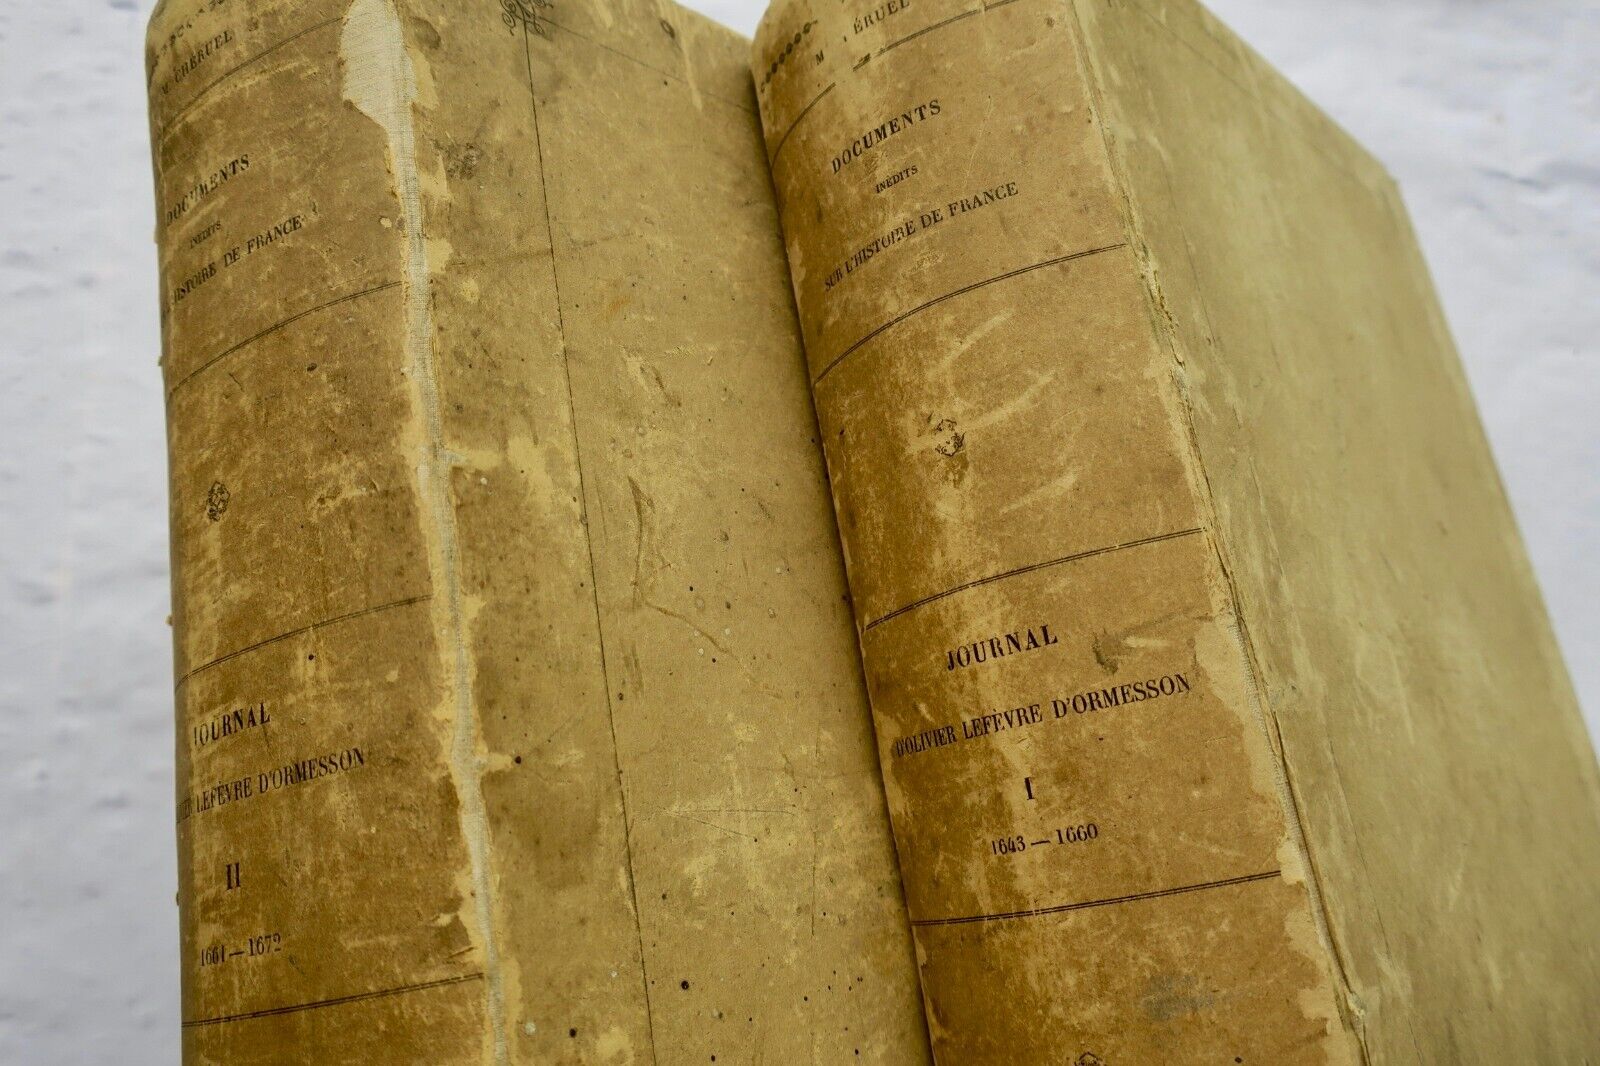 M CHÉRUEL
DOCUMENTS
INÉDITS
HISTOIRE DE FRANCE
JOURNAL
LEFÈVRE D'ORMESSON
II
1661 — 1672
M ÉRUEL
DOCUMENTS
INÉDITS
SUR L'HISTOIRE DE FRANCE
JOURNAL
D'OLIVIER LEFÈVRE D'ORMESSON
I
1643 — 1660